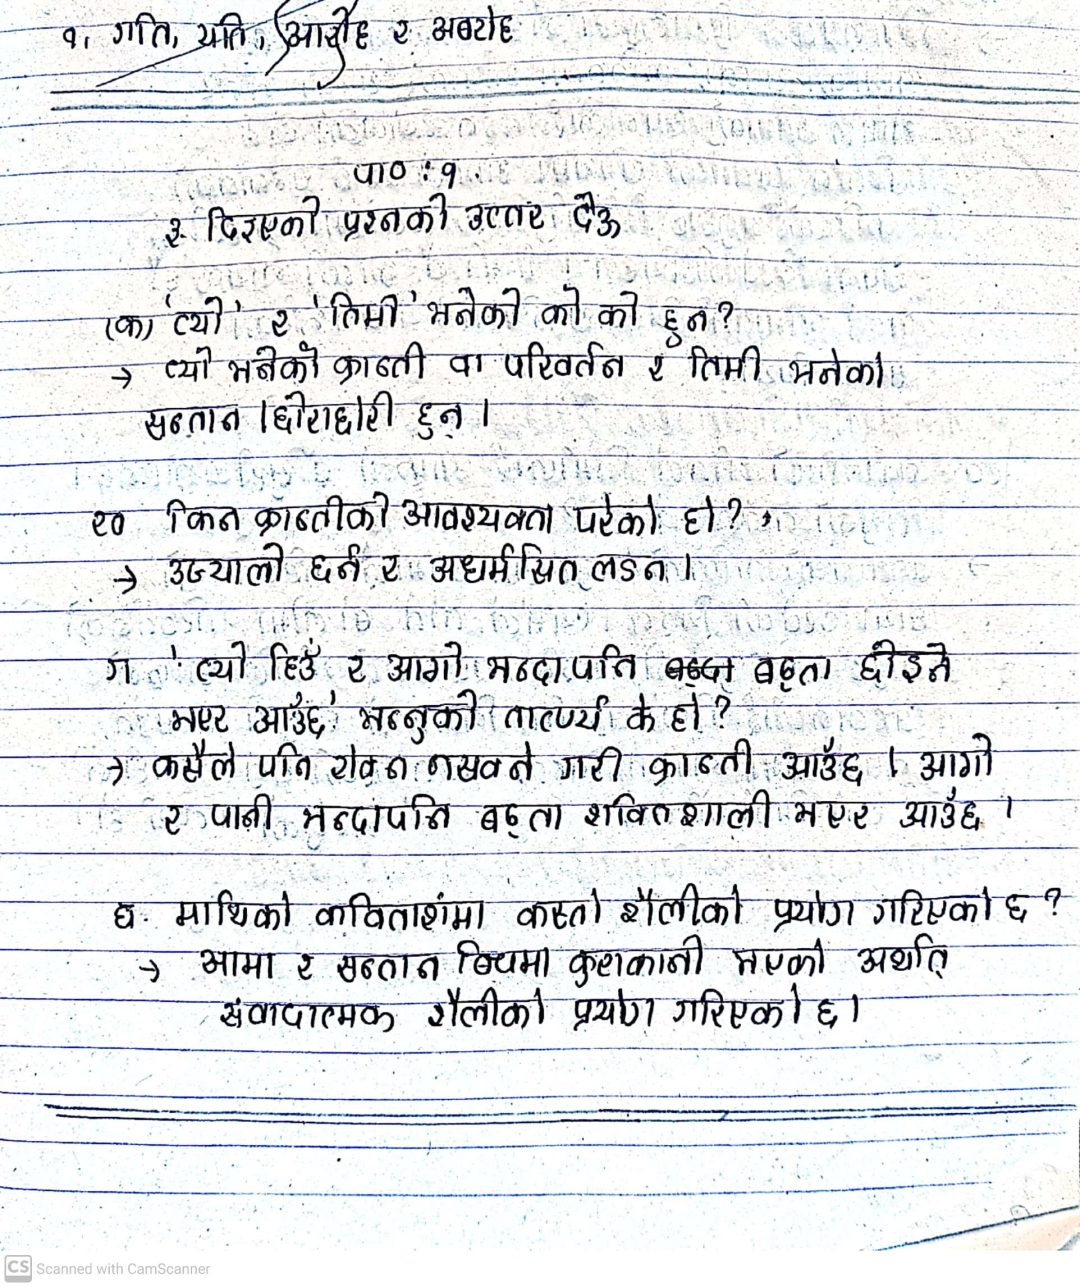 १. गति, यति, आरोह र अवरोह
पाठ : १.
३ दिइएको प्रश्नको उत्तर देऊ
(क) 'त्यो' र 'तिमी' भनेको को को हुन्?
→ त्यो भनेको क्रान्ती वा परिवर्तन र तिमी भनेको
सन्तान । छोराछोरी हुन् ।
ख किन क्रान्तीको आवश्यक्ता परेको हो?
→ उज्यालो छर्न र अधर्मसित् लडन ।
ग 'त्यो हिउँ र आगो भन्दापनि बढ्ता छोइने
भएर आउँछ' भन्नुको तात्पर्य के हो?
→ कसैले पनि रोक्न नसक्ने गरी क्रान्ती आउँछ । आगो
र पानी भन्दापनि बढ्ता शक्तिशाली भएर आउँछ ।
घ. माथिको कविताशंमा कस्तो शैलीको प्रयोग गरिएको छ?
→ आमा र सन्तान बिचमा कुराकानी भएको अर्थात्
संवादात्मक शैलीको प्रयोग गरिएको छ ।
CS Scanned with CamScanner